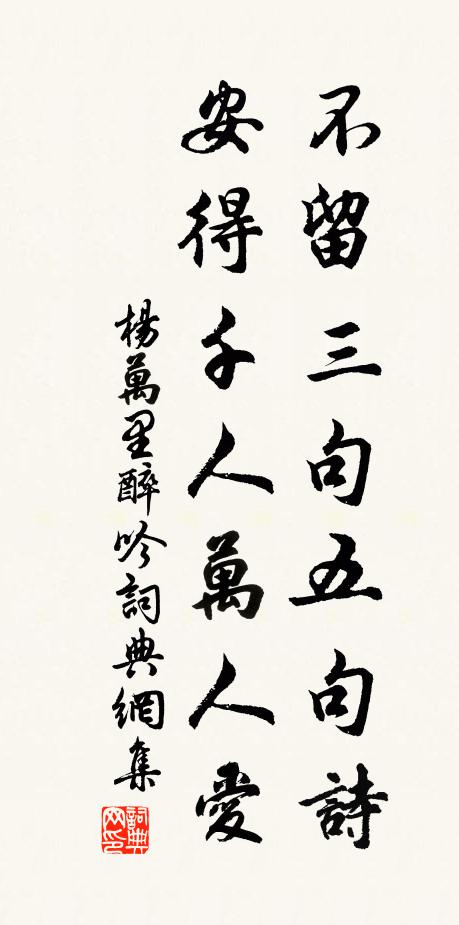 不留三句五句詩
安得千人萬人愛
楊萬里醉吟詞典網集
詞典网印